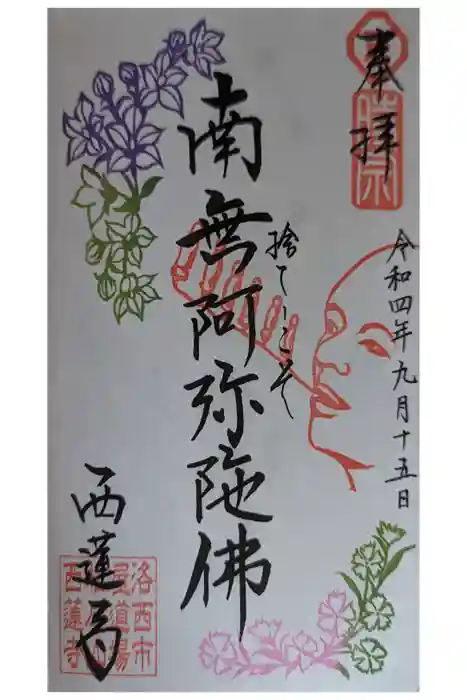 奉拝
令和四年九月十五日
捨ててこそ
南無阿弥陀佛
西蓮寺
西蓮寺